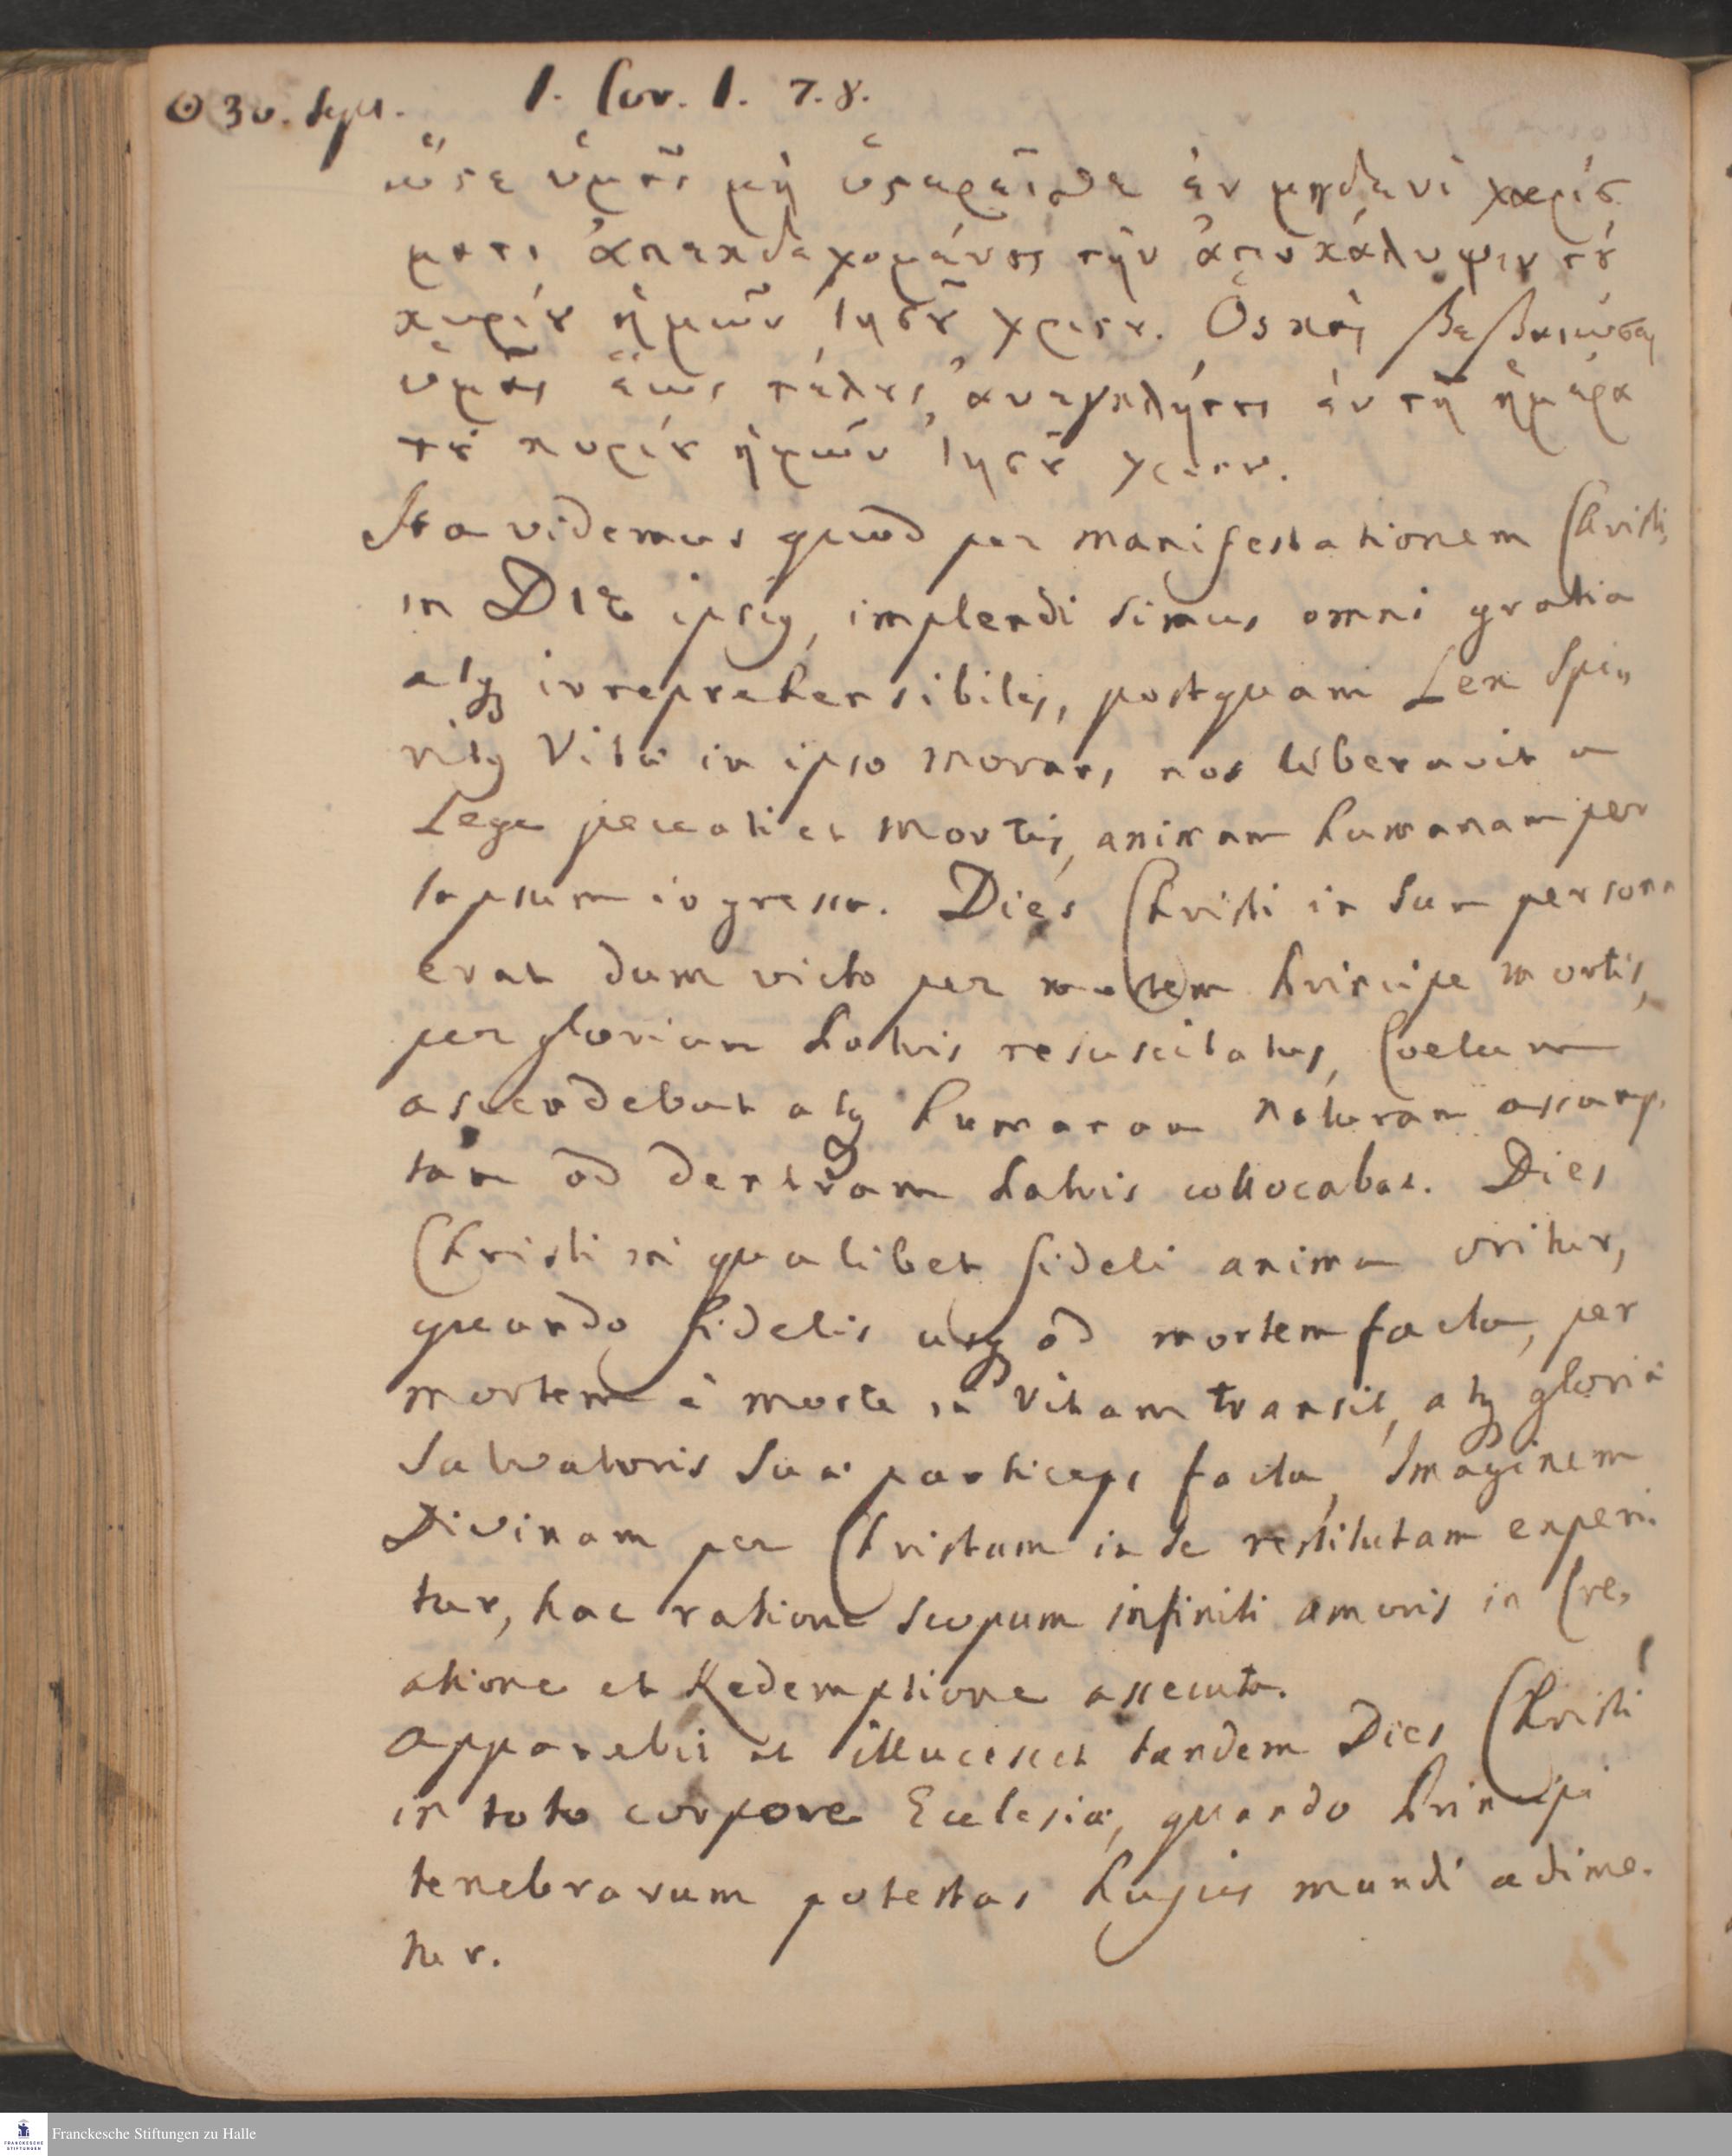 ☉ 30. Sept. 1. Cor. 1. 7. 8.
ὥϛε ὑμᾶς μὴ ὑϛερεῖσθε ἐν μηδενὶ χαρίσ
ματι ἀπεκδεχομένȣς τὴν ἀποκάλυψιν τȣ͂
κυρίȣ ἡμῶν Ἰησȣ͂ χριϛȣ. Ὃς καὶ βεβαιώσει
ὑμᾶς ἕως τέλȣς, ἀνεγκλήτȣς ἐν τῇ ἡμέρᾳ
τȣ͂ κυρίȣ ἡμῶν Ἰησȣ͂ χριϛȣ.
Ita videmus quod per manifestationem Christi,
in DIE ipsiꝰ, implendi simus omni gratia
atqꝫ irreprehensibiles, postquam Lex Spi„
ritꝰ Vitæ in ipso morans, nos liberavit a
Lege peccati et Mortis, animam humanam per
lapsum ingressa. Dies Christi in sua persona
erat dum victo per mortem Principe mortis,
per gloriam Patris resuscitatus, Coelum
ascendebat atqꝫ humanam naturam assump.
tam ad dextram Patris collocabat. Dies
Christi in qualibet fideli anima oritur,
quando fidelis usqꝫ ad mortem facta, per
mortem à morte in Vitam transit, atqꝫ gloriæ
Salvatoris sui particeps facta, Imaginem
Divinam per Christum in se restitutam experi.
tur, hac ratione scopum infiniti amoris in Cre,
atione et Redemptione assecuta.
Apparebit et illucescet tandem Dies Christi
in toto corpore Ecclesiæ, quando Principi
tenebrarum potestas hujus mundi adime.
tur.
Franckesche Stiftungen zu Halle